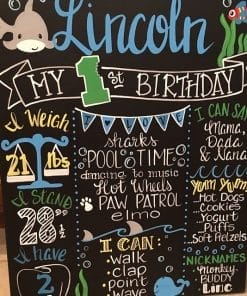 Lincoln
MY 1st BIRTHDAY
I Weigh
21 lbs
I STAND
28
I have
2
I LOVE
sharks
POOL TIME
dancing to music
Hot Wheels
PAW PATROL
elmo
I CAN:
walk
clap
point
wave
I CAN SAY
Mama
Dada
& Nana
Yum Yum
Hot Dogs
Cookies
Yogurt
Puffs
Soft Pretzels
NICKNAMES
Monkey
BUDDY
Linc